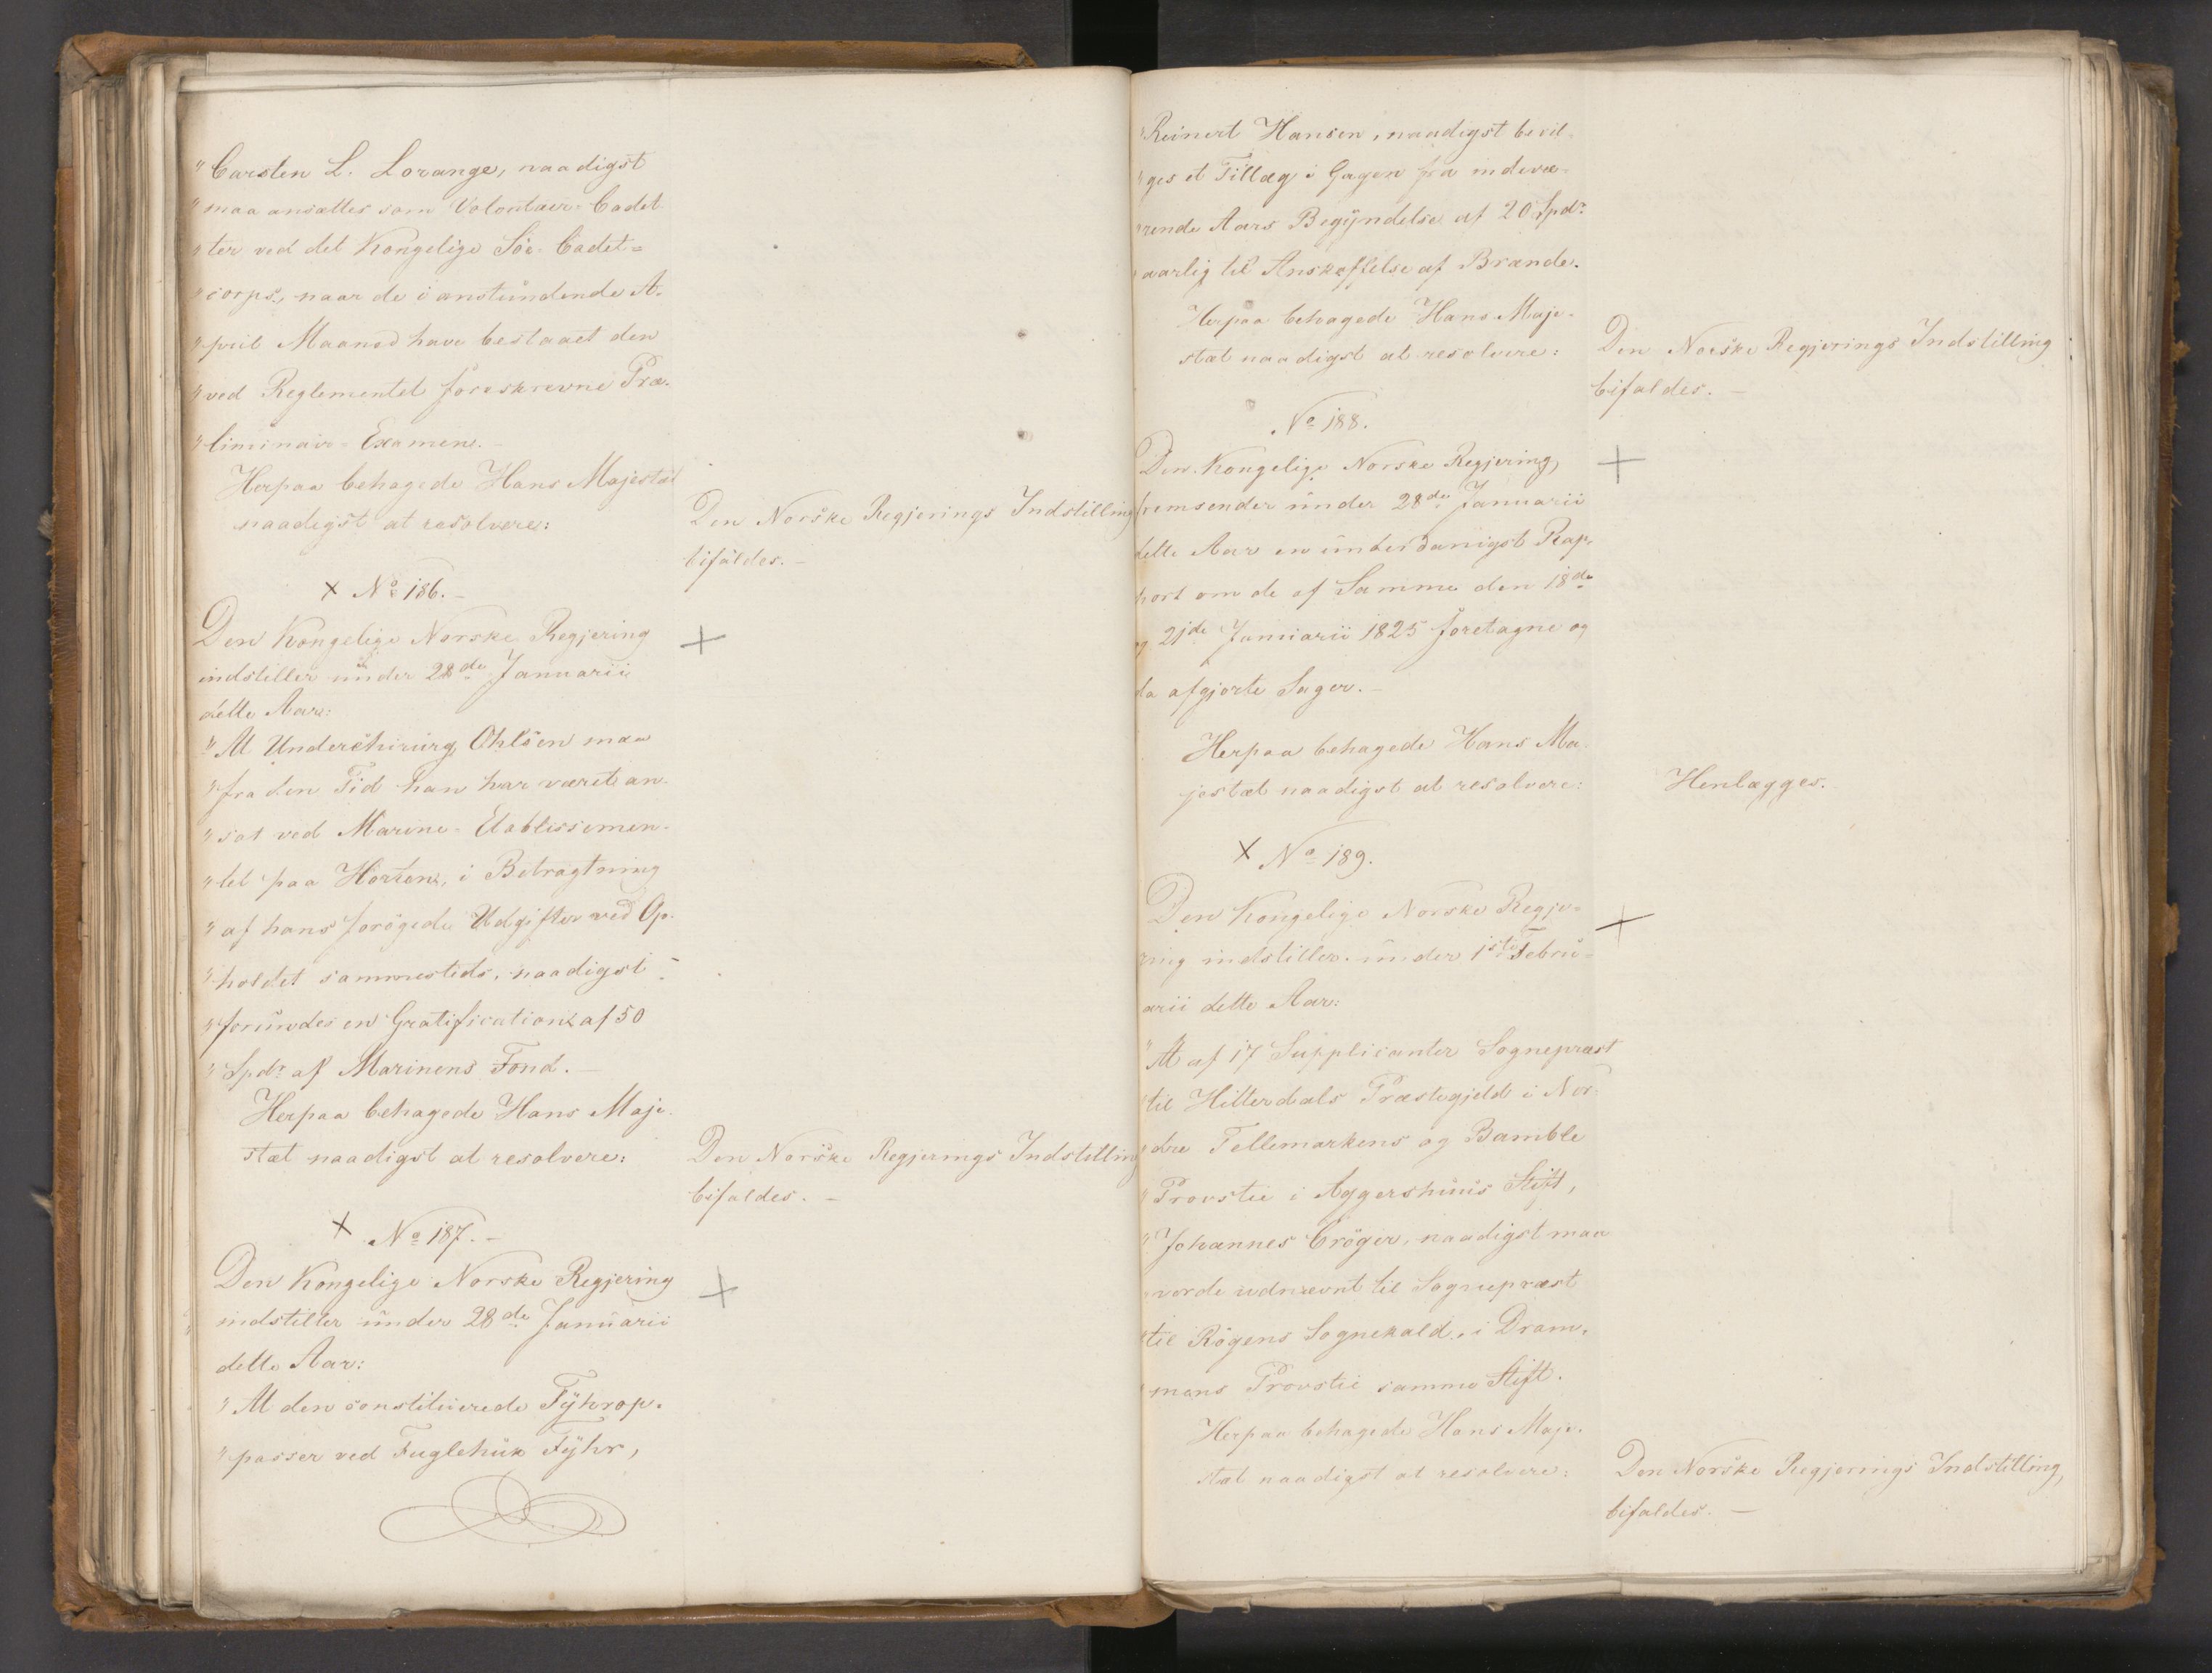 " Carsten L. Lorange, naadigst
" maa ansættes som Volontair-Cadet-
" ter ved det Kongelige Söe-Cadet=
" corps, naar de i anstundende A-
" pril Maaned have bestaaet den
" ved Reglementet foreskrevne Præ-
" liminair-Examen.
Herpaa behagede Hans Majestæt
naadigst at resolvere:
Den Norske Regjerings Indstilling
bifaldes. -
x No 186. -
Den Kongelige Norske Regjering
indstiller under 28de Januarii
dette Aar:
" At Underchirurg Ohlsen maa
" fra den Tid han har været an-
" sat ved Marine-Etablissemen-
" tet paa Horten, i Betragtning
" af hans forögede Udgifter ved Op-
" holdet sammesteds, naadigst
" forundes en Gratification af 50
" Spdr af Marinens Fond. -
Herpaa behagede Hans Maje-
stæt naadigst at resolvere:
Den Norske Regjerings Indstilling
bifaldes. -
x No 187. -
Den Kongelige Norske Regjering
indstiller under 28de Januarii
dette Aar:
" At den constituerede Fyhrop-
" passer ved Fuglehuk Fyhr,
" Reinert Hansen, naadigst bevil-
" ges et Tillæg i Gagen fra indevæ-
" rende Aars Begyndelse af 20 Spdr
" aarlig til Anskaffelse af Brænde.
Herpaa behagede Hans Maje-
stæt naadigst at resolvere:
Den Norske Regjerings Indstilling
bifaldes. -
No 188.
Den Kongelige Norske Regjering,
fremsender under 28de Januarii
dette Aar en underdanigst Rap-
port om de af Samme den 18de
og 21de Januarii 1825 foretagne og
da afgjorte Sager. -
Herpaa behagede Hans Ma-
jestæt naadigst at resolvere:
Henlægges.
x No 189.
Den Kongelige Norske Regje-
ring indstiller under 1ste Febru-
arii dette Aar:
" At af 17 Supplicanter Sognepræst
" til Hitterdals Præstegjeld i Nor-
" dre Tellemarkens og Bamble
" Provstie i Aggershuus Stift,
" Johannes Cröger, naadigst maa
" vorde udnævnt til Sognepræst
" til Rögens Sognekald, i Dram-
" mens Provstie samme Stift.
Herpaa behagede Hans Maje-
stæt naadigst at resolvere:
Den Norske Regjerings Indstilling,
bifaldes. -